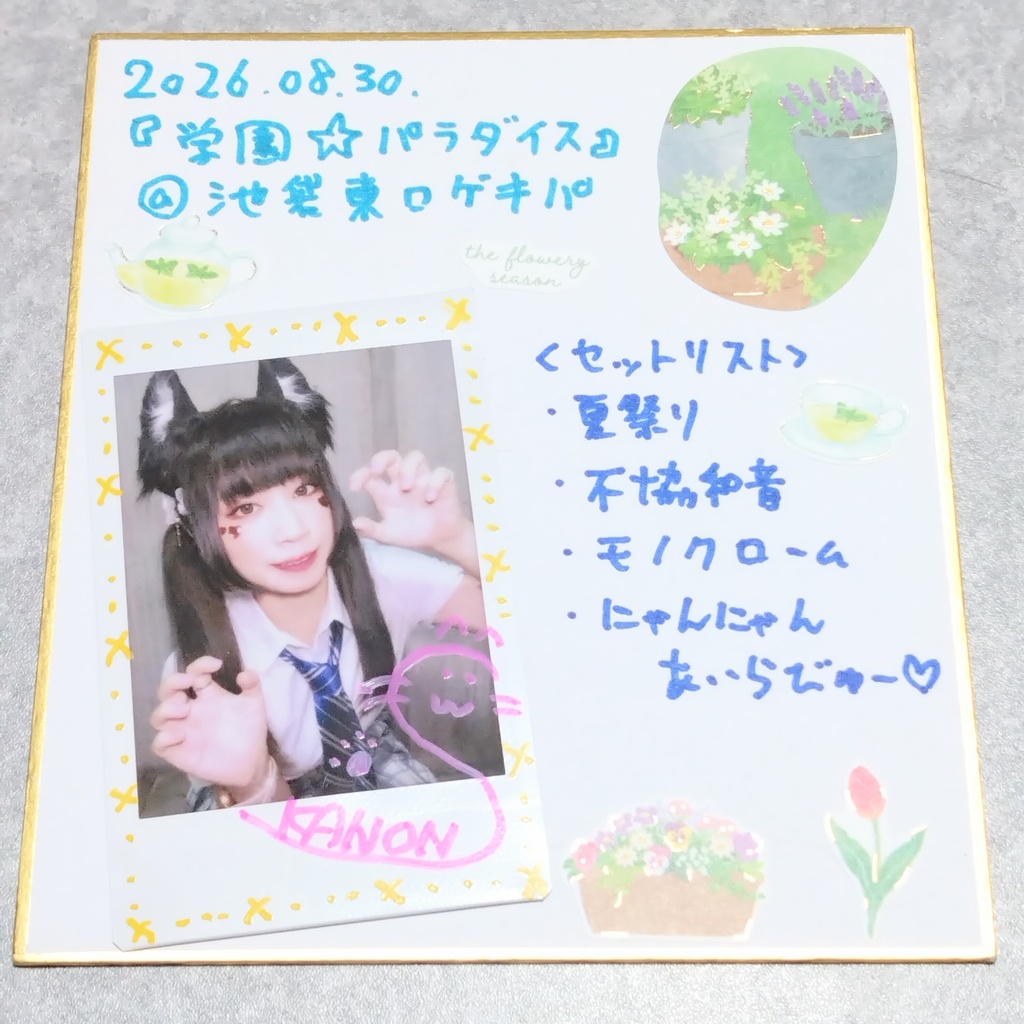 2026.08.30.
『学園☆パラダイス』
@池袋東口ゲキパ
the flowery
season
<セットリスト>
・夏祭り
・不協和音
・モノクローム
・にゃんにゃん
あいらびゅー♡
KANON